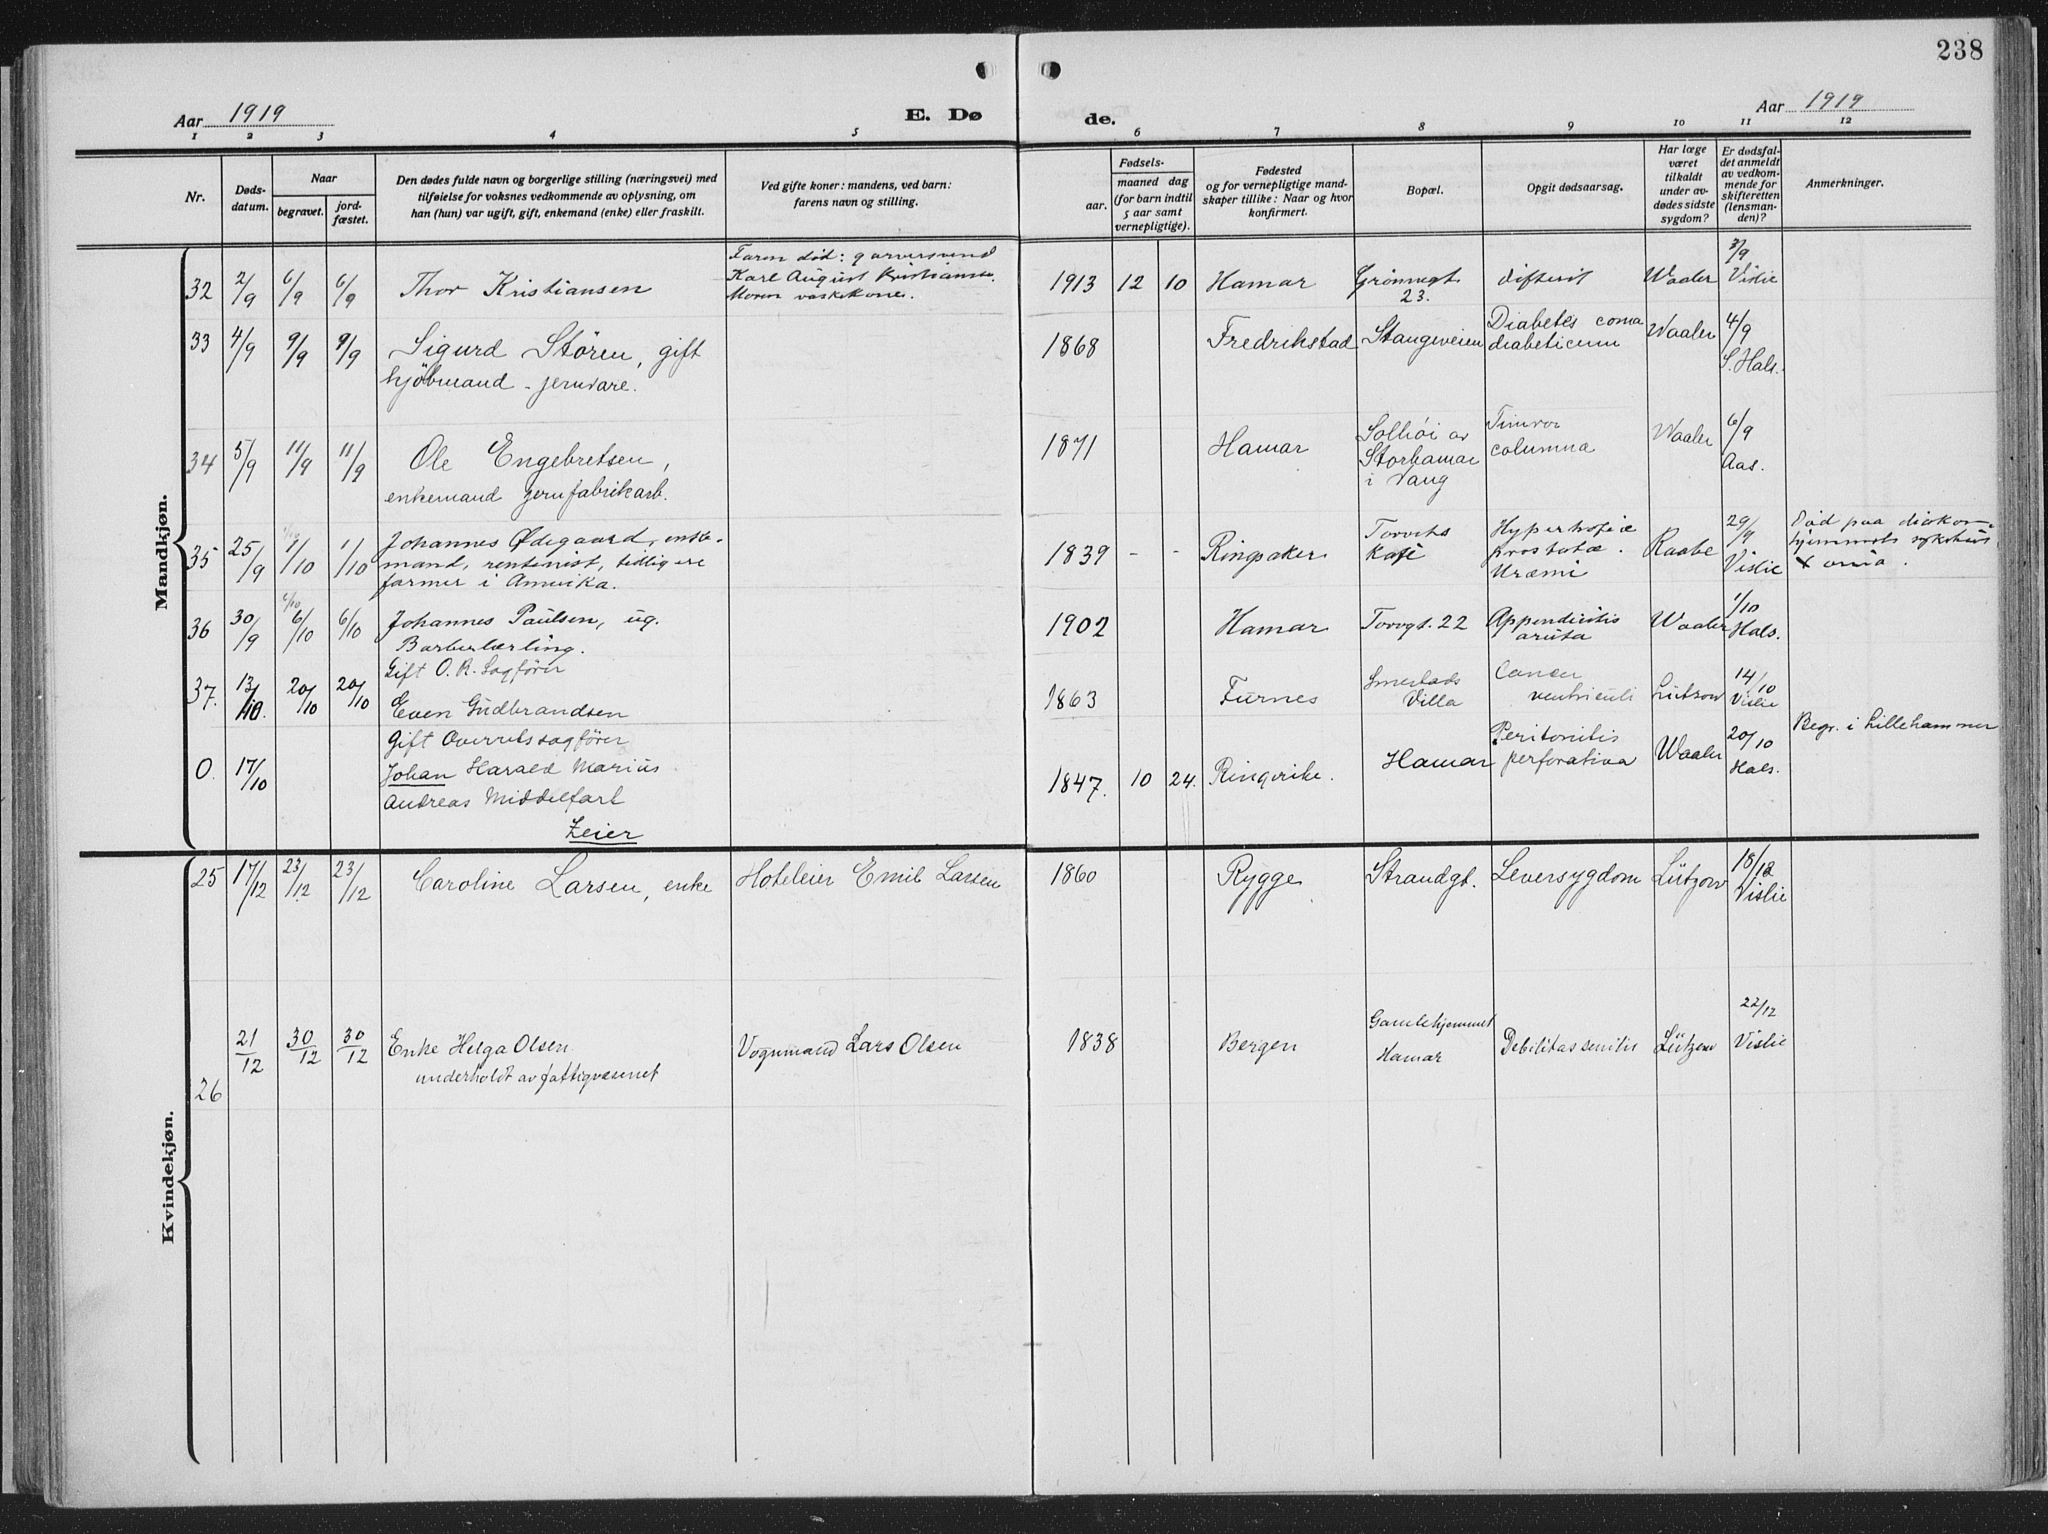 238
Aar 1919
E. Dø
de.
Aar 1919
1 2 3 4 5 6 7 8 9 10 11 12
Nr.
Døds-
datum.
Naar
begravet.
jord-
fæstet.
Den dødes fulde navn og borgerlige stilling (næringsvei) med
tilføielse for voksnes vedkommende av oplysning, om
han (hun) var ugift, gift, enkemand (enke) eller fraskilt.
Ved gifte koner: mandens, ved barn:
farens navn og stilling.
Fødsels-
aar.
maaned dag
(for barn indtil
5 aar samt
vernepligtige).
Fødested
og for vernepligtige mand-
skaper tillike: Naar og hvor
konfirmert.
Bopæl.
Opgit dødsaarsag.
Har læge
været
tilkaldt
under av-
dødes sidste
sygdom?
Er dødsfal-
det anmeldt
av vedkom-
mende for
skifteretten
(lensman-
den)?
Anmerkninger.
Mandkjøn.
32 2/9 6/9 6/9 Thor Kristiansen
Faren død: garversvend
Karl August Kristiansen.
Moren vaskekone.
1913 12 10 Hamar
Grønnegt
23.
difterit
Waaler
3/9
Vislie
33 4/9 9/9 9/9 Sigurd Støren, gift
kjøbmand - jernvare.
1868 Fredrikstad Stangeveien
Diabetes coma
diabeticum
Waaler
4/9
S. Hals.
34 5/9 11/9 11/9 Ole Engebretsen,
enkemand jernfabrikarb.
1871 Hamar
Solhøi av
Storhamar
i Vang
columna
Waaler
6/9
Aas.
35 25/9 1/10 1/10
Johannes Ødegaard, enke-
mand, rentenist, tidligere
farmer i Amerika.
1839 - - Ringsaker
Torvets
kafé
Hypertrofiæ
prostatæ.
Uræmi
Raabe
29/9
Vislie
Død paa diakon-
hjemmets sykehus
36 30/9 6/10 6/10
Johannes Paulsen, ug.
Barberlærling.
1902 Hamar Torvgt. 22
Appendicitis
acuta
Waaler
1/10
Hals.
37. 13/10. 20/10 20/10
Gift O. R. Sagfører
Even Gudbrandsen
1863 Furnes
Smestads
Villa
Cancer
ventriculi
Lützow
14/10
Vislie
0. 17/10
Gift Overretssagfører
Johan Harald Marius
Andreas Middelfart
Zeier
1847. 10 24. Ringerike. Hamar
Peritonitis
perforativa
Waaler
20/10
Hals.
Begr. i Lillehammer
Kvindekjøn.
25 17/12 23/12 23/12 Caroline Larsen, enke
Hoteleier Emil Larsen
1860 Rygge Strandgt. Leversygdom Lützow
18/12
Vislie
26 21/12 30/12 30/12
Enke Helga Olsen
underholdt av fattigvæsenet
Vognmand Lars Olsen
1838 Bergen
Gamlehjemmet
Hamar
Debilitas senilis Lützow
22/12
Vislie